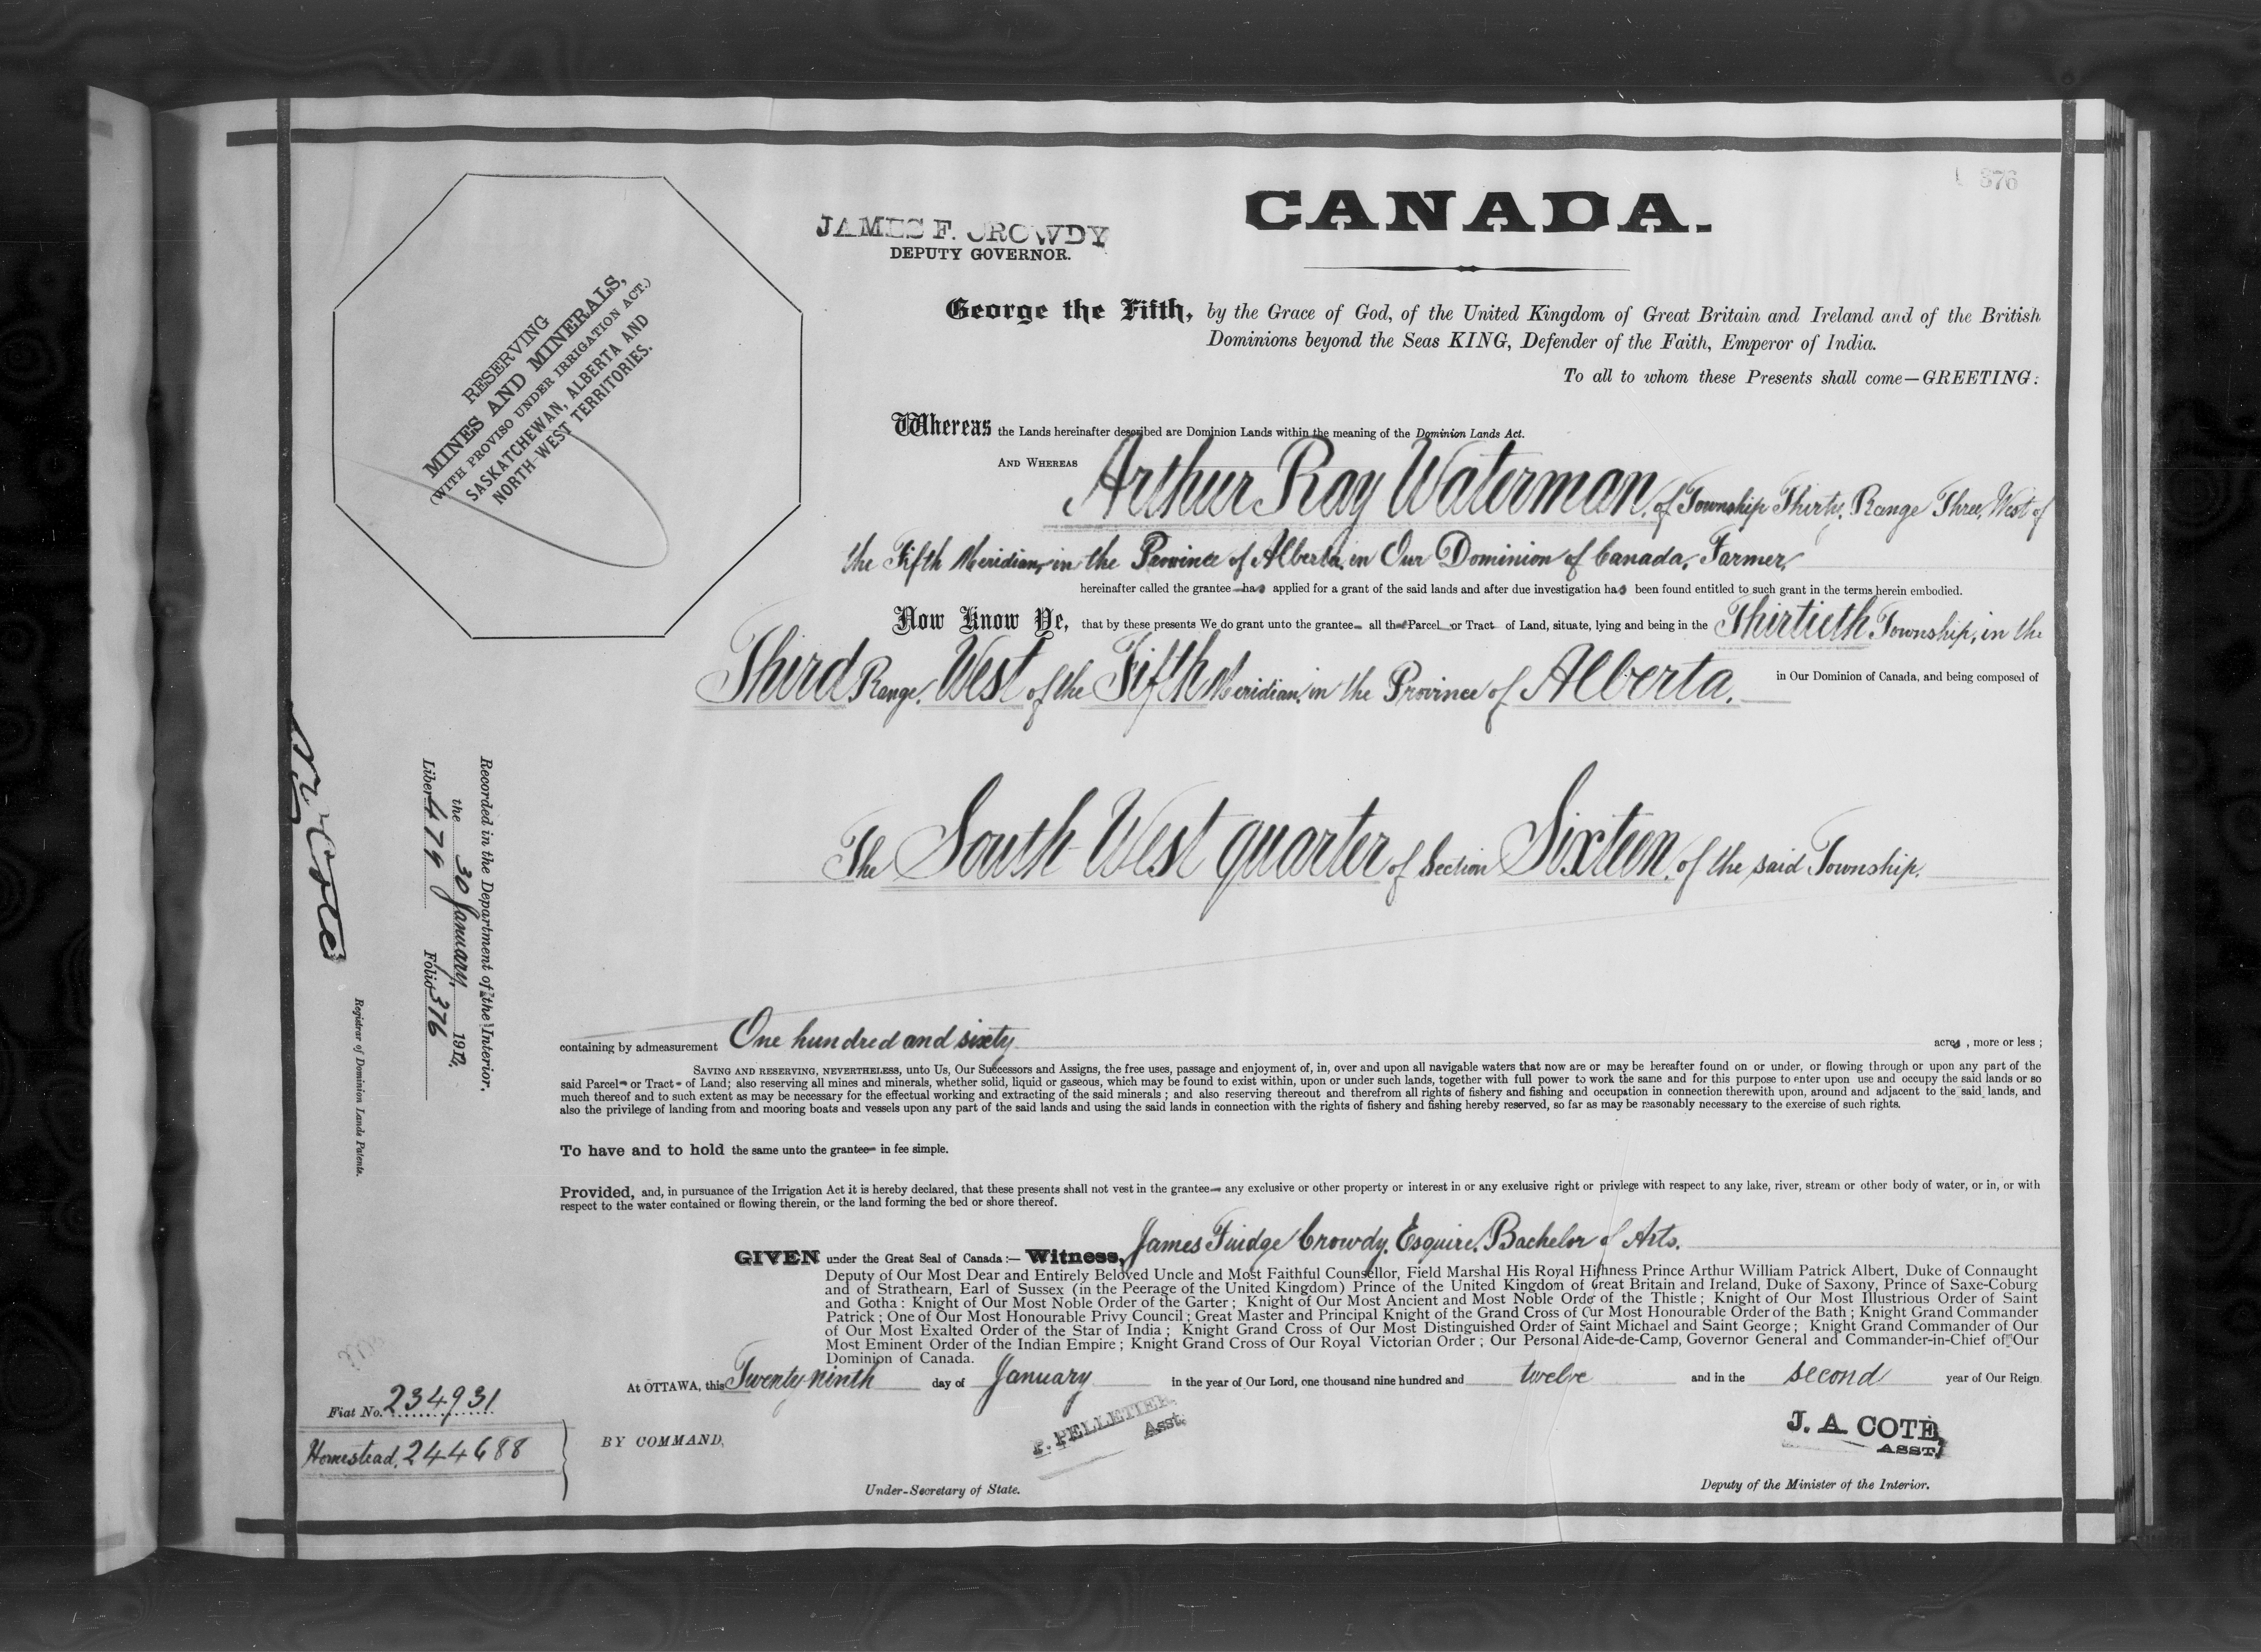 376
CANADA.
JAMES F. CROWDY
DEPUTY GOVERNOR.
RESERVING
MINES AND MINERALS,
(WITH PROVISO UNDER IRRIGATION ACT.)
SASKATCHEWAN, ALBERTA AND
NORTH-WEST TERRITORIES.
George the Fifth, by the Grace of God, of the United Kingdom of Great Britain and Ireland and of the British
Dominions beyond the Seas KING, Defender of the Faith, Emperor of India.
To all to whom these Presents shall come—GREETING:
Whereas the Lands hereinafter described are Dominion Lands within the meaning of the Dominion Lands Act.
AND WHEREAS Arthur Ray Waterman, of Township Thirty, Range Three, West of
the Fifth Meridian, in the Province of Alberta, in Our Dominion of Canada, Farmer,
hereinafter called the grantee has applied for a grant of the said lands and after due investigation has been found entitled to such grant in the terms herein embodied.
Now Know Ye, that by these presents We do grant unto the grantee all that Parcel or Tract of Land, situate, lying and being in the Thirtieth Township, in the
Third Range, West of the Fifth Meridian, in the Province of Alberta, in Our Dominion of Canada, and being composed of
The South West quarter of Section Sixteen, of the said Township.
containing by admeasurement One hundred and sixty acres, more or less;
SAVING AND RESERVING, NEVERTHELESS, unto Us, Our Successors and Assigns, the free uses, passage and enjoyment of, in, over and upon all navigable waters that now are or may be hereafter found on or under, or flowing through or upon any part of the
said Parcel or Tract of Land; also reserving all mines and minerals, whether solid, liquid or gaseous, which may be found to exist within, upon or under such lands, together with full power to work the same and for this purpose to enter upon use and occupy the said lands or so
much thereof and to such extent as may be necessary for the effectual working and extracting of the said minerals; and also reserving thereout and therefrom all rights of fishery and fishing and occupation in connection therewith upon, around and adjacent to the said lands, and
also the privilege of landing from and mooring boats and vessels upon any part of the said lands and using the said lands in connection with the rights of fishery and fishing hereby reserved, so far as may be reasonably necessary to the exercise of such rights.
To have and to hold the same unto the grantee in fee simple.
Provided, and, in pursuance of the Irrigation Act it is hereby declared, that these presents shall not vest in the grantee any exclusive or other property or interest in or any exclusive right or privilege with respect to any lake, river, stream or other body of water, or in, or with
respect to the water contained or flowing therein, or the land forming the bed or shore thereof.
GIVEN under the Great Seal of Canada:— Witness, James Fuidge Crowdy, Esquire, Bachelor of Arts.
Deputy of Our Most Dear and Entirely Beloved Uncle and Most Faithful Counsellor, Field Marshal His Royal Highness Prince Arthur William Patrick Albert, Duke of Connaught
and of Strathearn, Earl of Sussex (in the Peerage of the United Kingdom) Prince of the United Kingdom of Great Britain and Ireland, Duke of Saxony, Prince of Saxe-Coburg
and Gotha: Knight of Our Most Noble Order of the Garter; Knight of Our Most Ancient and Most Noble Order of the Thistle; Knight of Our Most Illustrious Order of Saint
Patrick; One of Our Most Honourable Privy Council; Great Master and Principal Knight of the Grand Cross of Our Most Honourable Order of the Bath; Knight Grand Commander
of Our Most Exalted Order of the Star of India; Knight Grand Cross of Our Most Distinguished Order of Saint Michael and Saint George; Knight Grand Commander of Our
Most Eminent Order of the Indian Empire; Knight Grand Cross of Our Royal Victorian Order; Our Personal Aide-de-Camp, Governor General and Commander-in-Chief of Our
Dominion of Canada.
At OTTAWA, this Twenty-ninth day of January in the year of Our Lord, one thousand nine hundred and twelve and in the second year of Our Reign
BY COMMAND,
P. PELLETIER,
Asst.
Under-Secretary of State.
J. A COTE,
ASST.
Deputy of the Minister of the Interior.
Recorded in the Department of the Interior,
the 30 January, 1912,
Liber 479 Folio 376
N. O. Coté
Registrar of Dominion Lands Patents.
Fiat No. 234931
Homestead, 244688